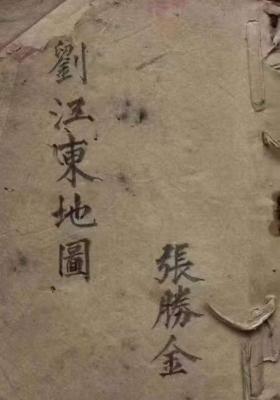 劉江東地圖
張勝金